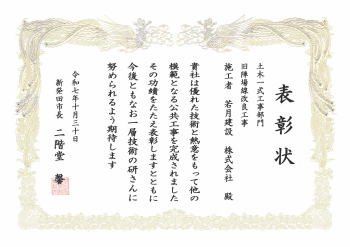 表彰状
土木一式工事部門
旧陣場線改良工事
施工者 若月建設 株式会社 殿
貴社は優れた技術と熱意をもって他の
模範となる公共工事を完成されました
その功績をたたえ表彰しますとともに
今後ともなお一層技術の研さんに
努められるよう期待します
令和七年十月三十日
新発田市長 二階堂 馨